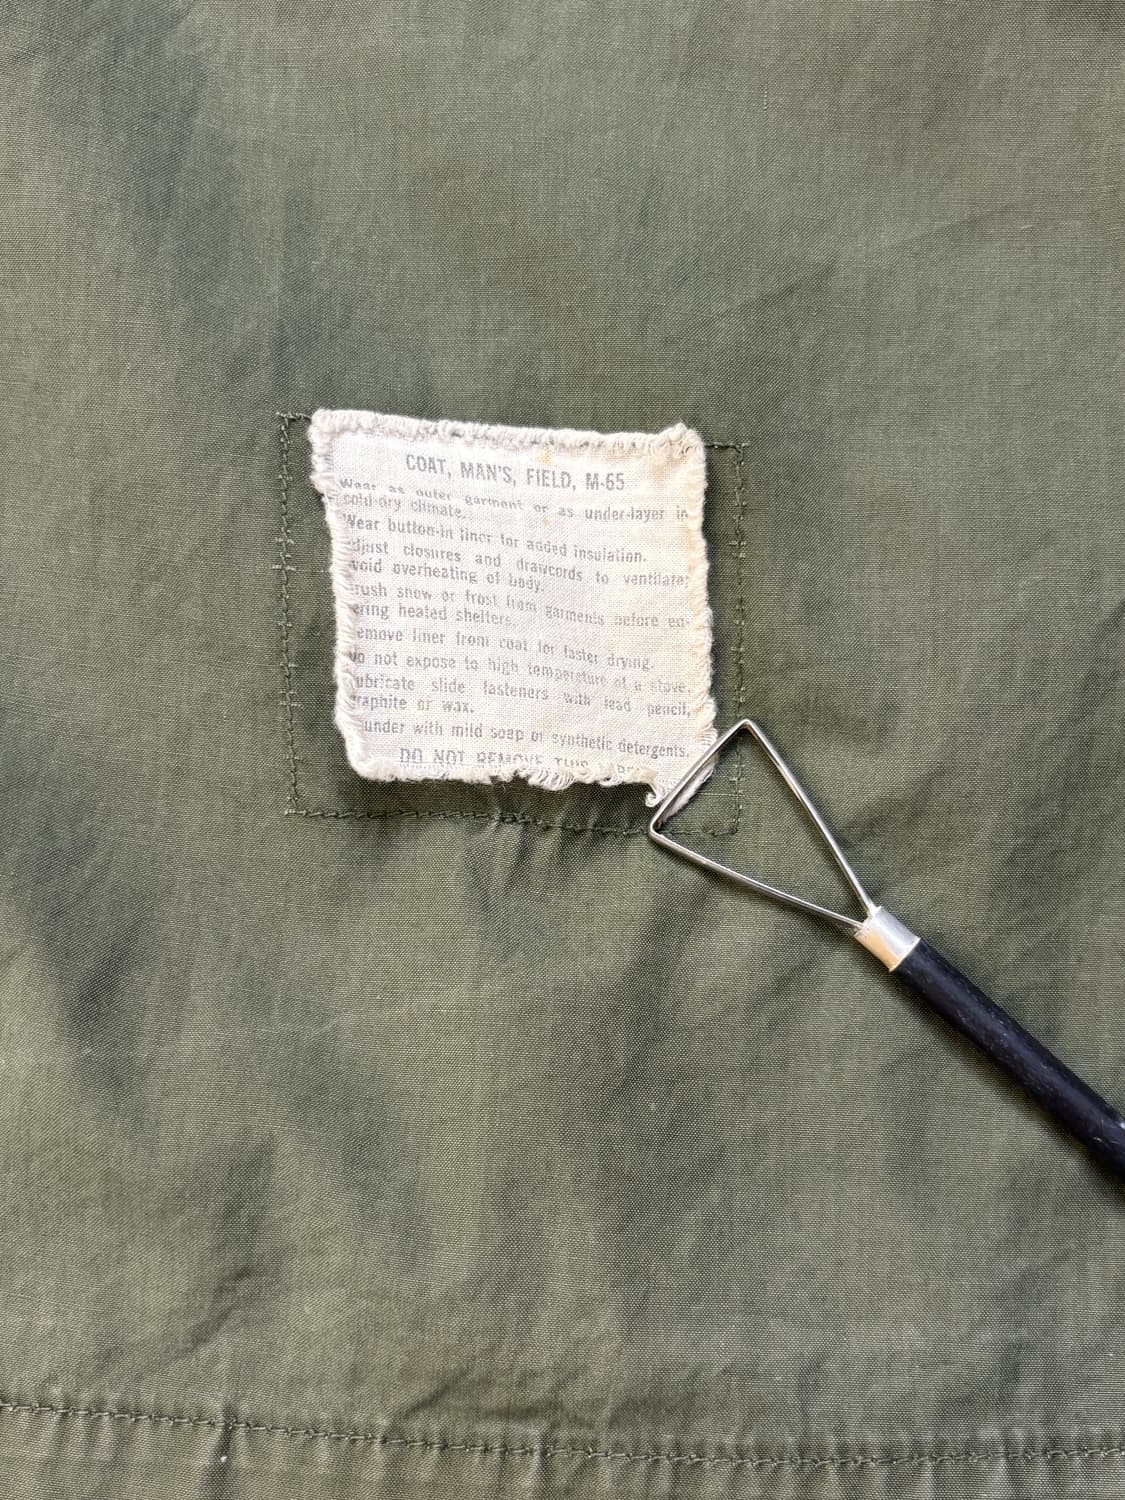 COAT, MAN'S, FIELD, M-65
Wear as outer garment or as under-layer in
cold-dry climate.
Wear button-in liner for added insulation.
djust closures and drawcords to ventilate;
void overheating of body.
rush snow or frost from garments before en-
ering heated shelters.
emove liner from coat for faster drying.
Do not expose to high temperature of a stove.
ubricate slide fasteners with lead pencil,
raphite or wax.
under with mild soap or synthetic detergents.
DO NOT REMOVE THIS